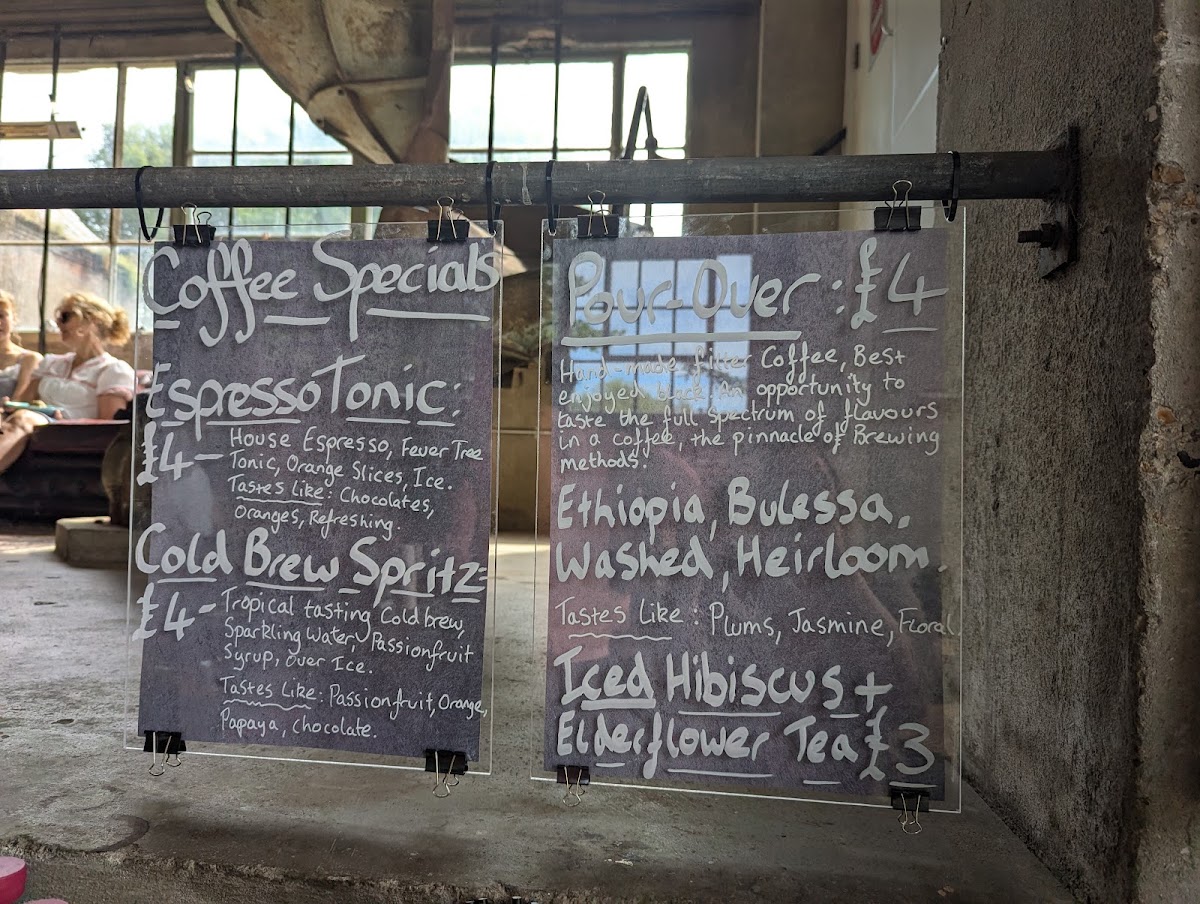 Coffee Specials
Espresso Tonic:
£4 - House Espresso, Fever Tree
Tonic, Orange Slices, Ice.
Tastes Like: Chocolates,
Oranges, Refreshing.
Cold Brew Spritz:
£4 - Tropical tasting Cold brew,
Sparkling Water, Passionfruit
Syrup, over Ice.
Tastes Like: Passionfruit, Orange,
Papaya, chocolate.
Pour-Over: £4
Hand-made filter Coffee, Best
enjoyed black. An opportunity to
taste the full spectrum of flavours
in a coffee, the pinnacle of Brewing
methods.
Ethiopia, Bulessa,
Washed, Heirloom.
Tastes Like: Plums, Jasmine, Floral
Iced Hibiscus +
Elderflower Tea £3